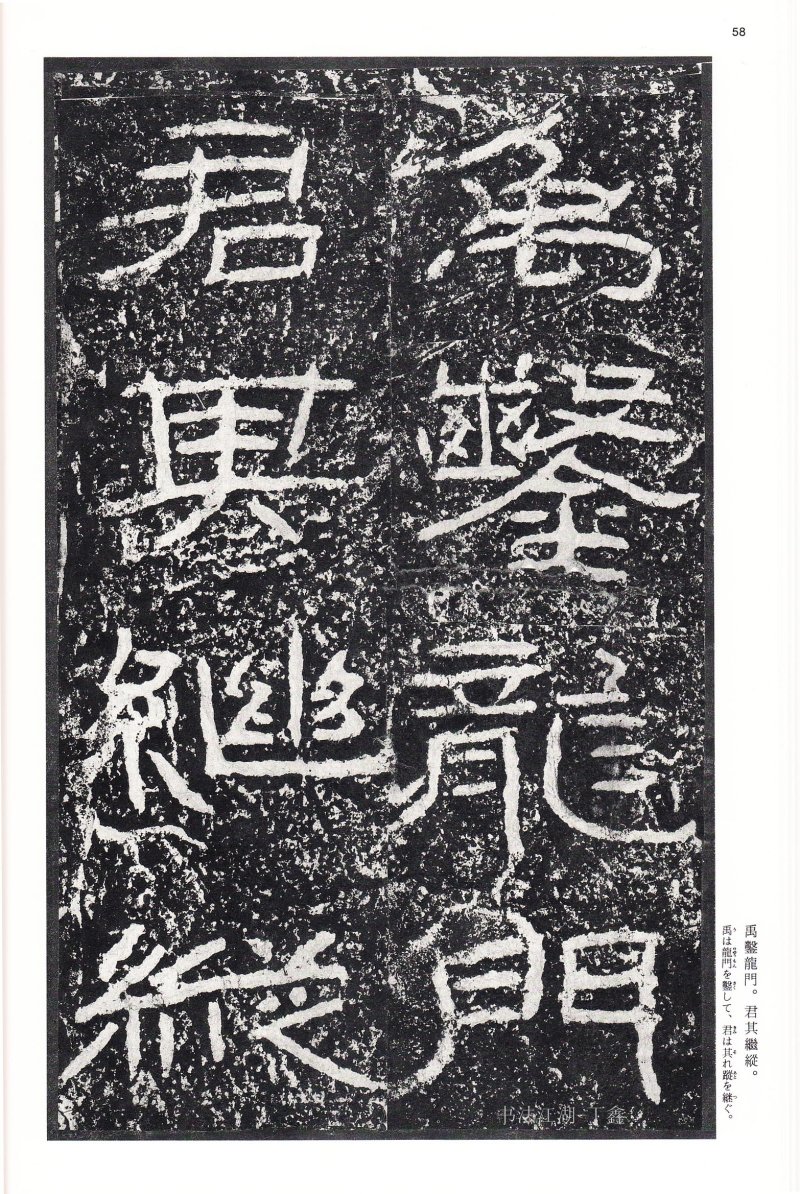 58
禹鑿龍門
君其繼縱
禹鑿龍門。君其繼縱。
禹は龍門を鑿して、君は其れ蹤を継ぐ。
书法江湖 丁鑫